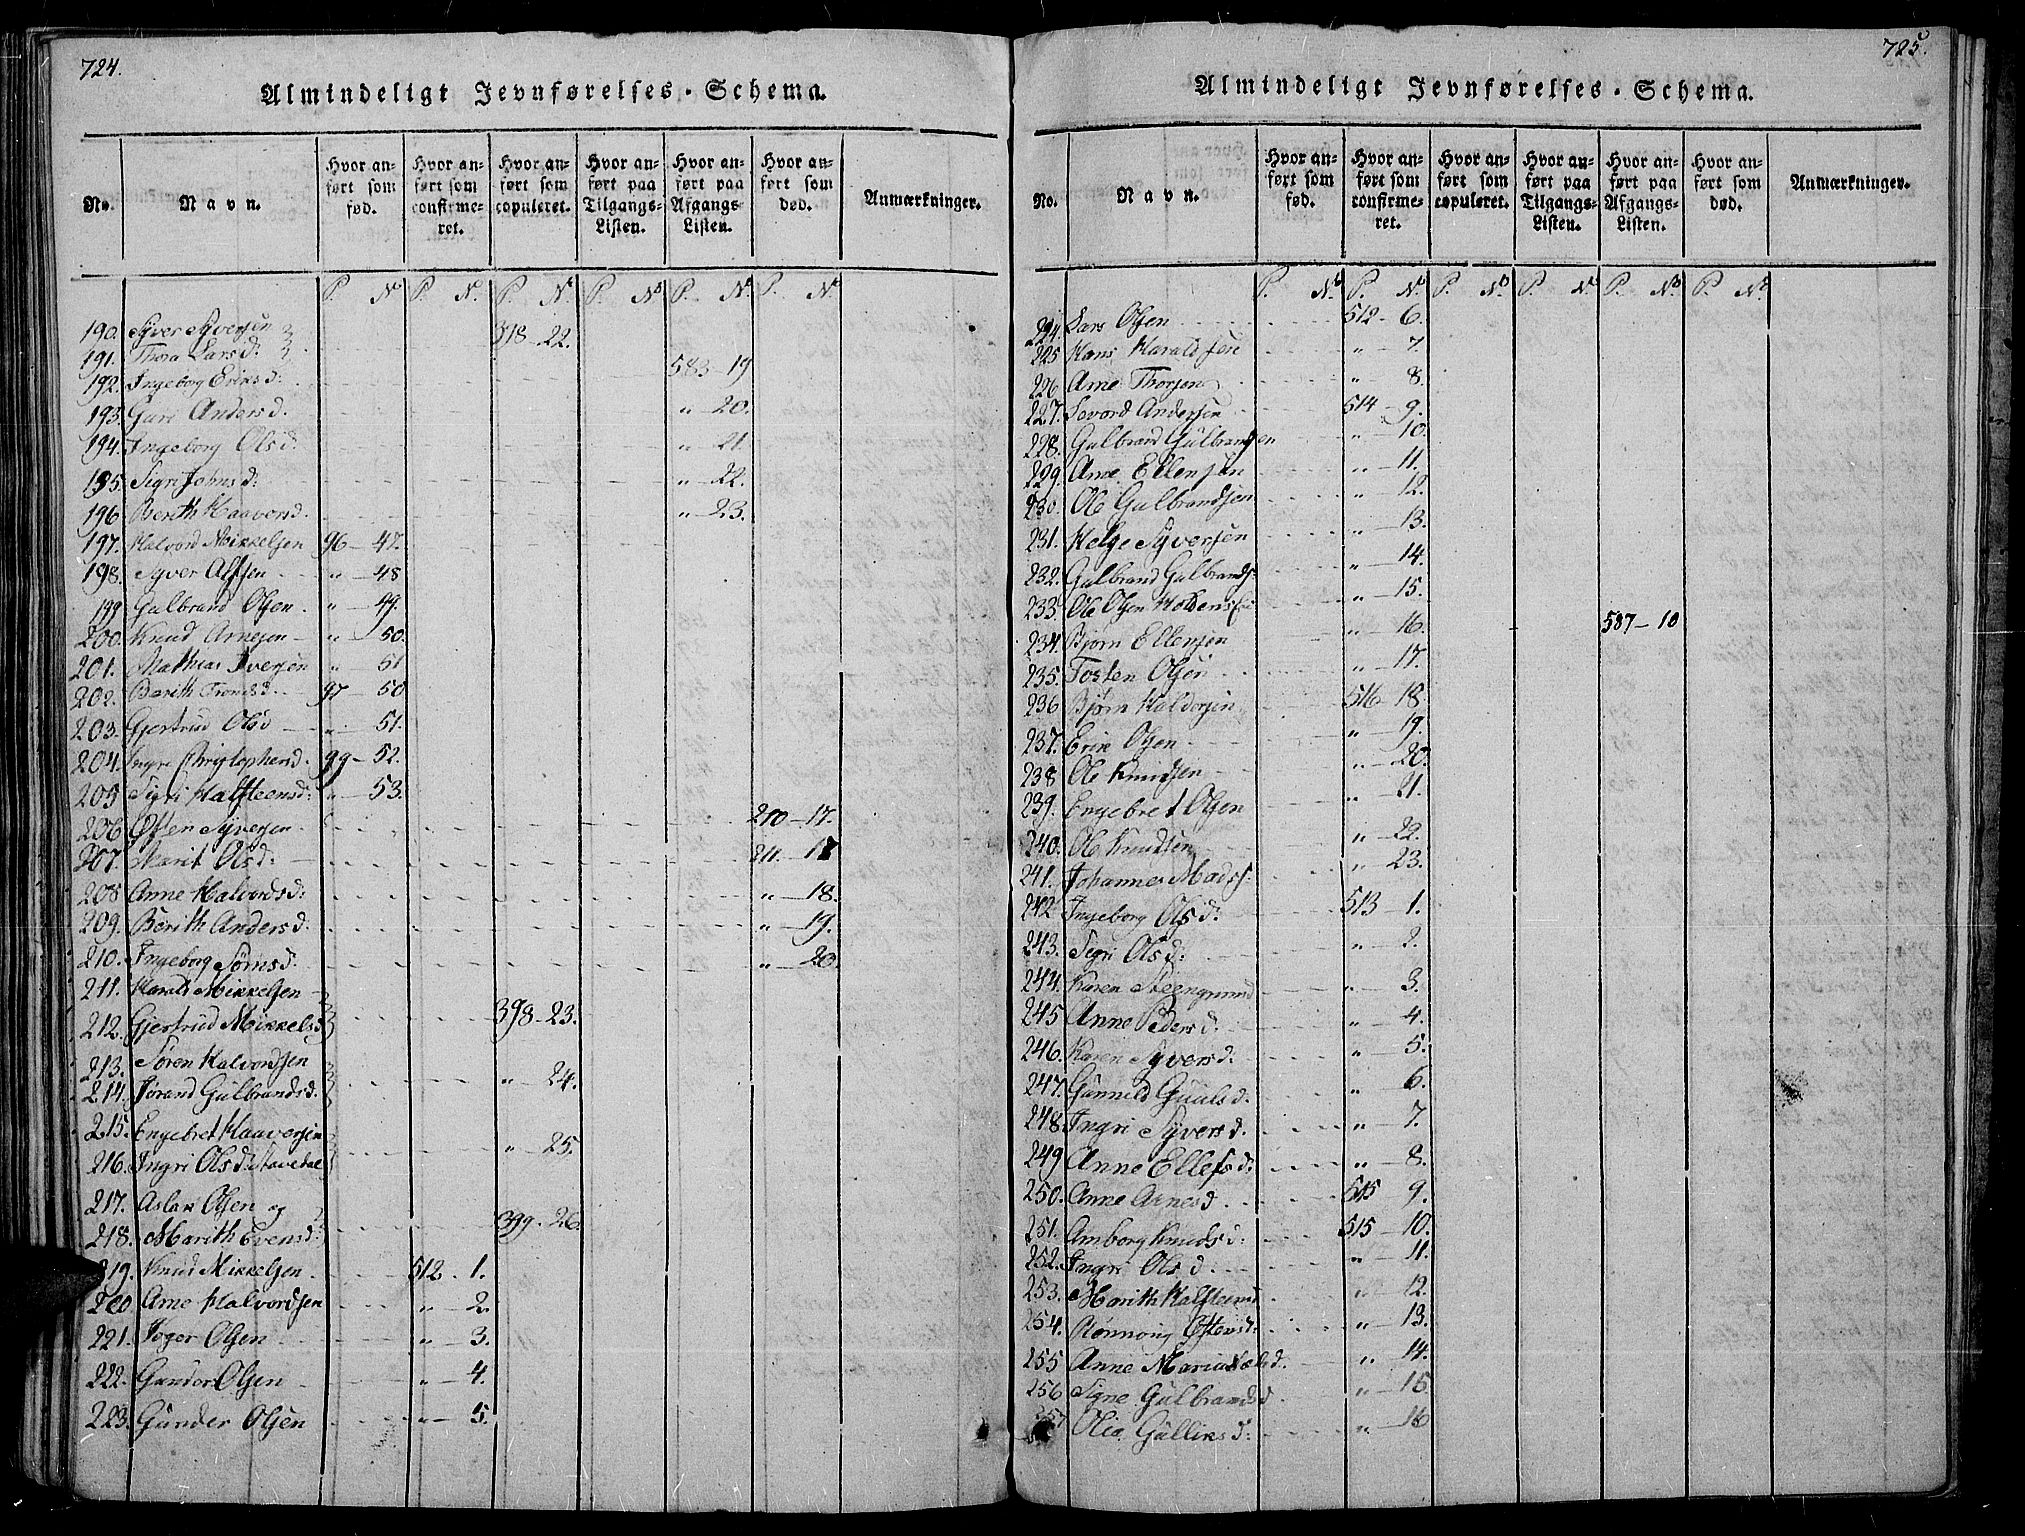 724.
Almindeligt Jevnførelses-Schema.
No.
Navn.
Hvor anført som fød.
Hvor anført som confirmeret.
Hvor anført som copuleret.
Hvor anført paa Tilgangs-Listen.
Hvor anført paa Afgangs Listen.
Hvor anført som død.
Anmærkninger.
P. No P. No P. No P. No P. No P. No
190. Syver Syversen 318-22.
191. Thora Larsd:
192. Ingeborg Eriksd: 583-19
193. Guri Andersd. " 20.
194. Ingeborg Olsd " 21.
195. Sigri Johnsd: " 22.
196. Berith Haaversd. " 23.
197. Halvord Mikkelsen 96-47.
198. Syver Alfsen " 48
199. Gulbrand Olsen " 49.
200. Knud Arnesen " 50.
201. Mathias Iversen " 51
202. Berith Tromsd. 97-50
203. Gjertrud Olsd " 51.
204. Ingre Christophersd. 99-52.
205 Sigri Halfteensd: " 53.
206 Østen Syversen 210-17.
207. Marit Olsd: 211-17
208 Anne Halvordsd: " 18.
209. Berith Andersd. " 19.
210. Ingeborg Sørnsd. " 20.
211. Harald Mikkelsen
212. Gjertrud Mikkelsd 398-23.
213. Søren Halvordsen
214. Jørand Gulbrandsd. " 24.
215. Engebret Haaversen
216. Ingri Olsd: Stavedal " 25.
217. Aslak Olsen og
218. Marith Evensd: 399-26
219. Knud Mikkelsen 512-1.
220 Arne Halvordsen " 2.
221. Joger Olsen " 3.
222. Gunder Olsen " 4.
223. Gunder Olsen " 5.
725.
Almindeligt Jevnførelses-Schema.
No.
Navn.
Hvor anført som fød.
Hvor anført som confirmeret.
Hvor anført som copuleret.
Hvor anført paa Tilgangs-Listen.
Hvor anført paa Afgangs-Listen.
Hvor anført som død.
Anmærkninger.
P. No P. No P. No P. No P. No P. No
224. Lars Olsen 512-6.
225 Hans Haraldsen " 7.
226 Arne Thorsen " 8.
227. Sevord Andersen 514-9.
228. Gulbrand Gulbrandsen " 10.
229. Arne Ellensen " 11.
230. Ole Gulbrandsen " 12.
231. Helge Syversen " 13.
232. Gulbrand Gulbrands: " 14.
233. Ole Olsen " 15.
234. Bjørn Ellensen " 16. 587-10
235. Tosten Olsen " 17.
236 Bjørn Haldorsen 516-18.
237. Erik Olsen " 19.
238 Ole Knudsen " 20.
239. Engebret Olsen " 21.
240. Ole Knudsen " 22.
241. Johannes Mads: " 23.
242 Ingeborg Olsd: 513-1.
243. Sigri Olsd: " 2.
244. Karen Steengrund " 3.
245 Anne Pedersd. " 4.
246. Karen Syversd. " 5.
247. Gunnild Guulsd. " 6.
248. Ingri Syversd. " 7.
249 Anne Ellefsd: " 8.
250. Anne Arnesd. 515-9.
251. Amborg Knudsd: 515-10.
252. Ingri Olsd. " 11.
253. Marith Halfteensd " 12.
254. Rønnoug Østensd: " 13.
255 Anne Maria " 14.
256 Signe Gulbrandsd. " 15.
257 Olia Gulliksd: " 16